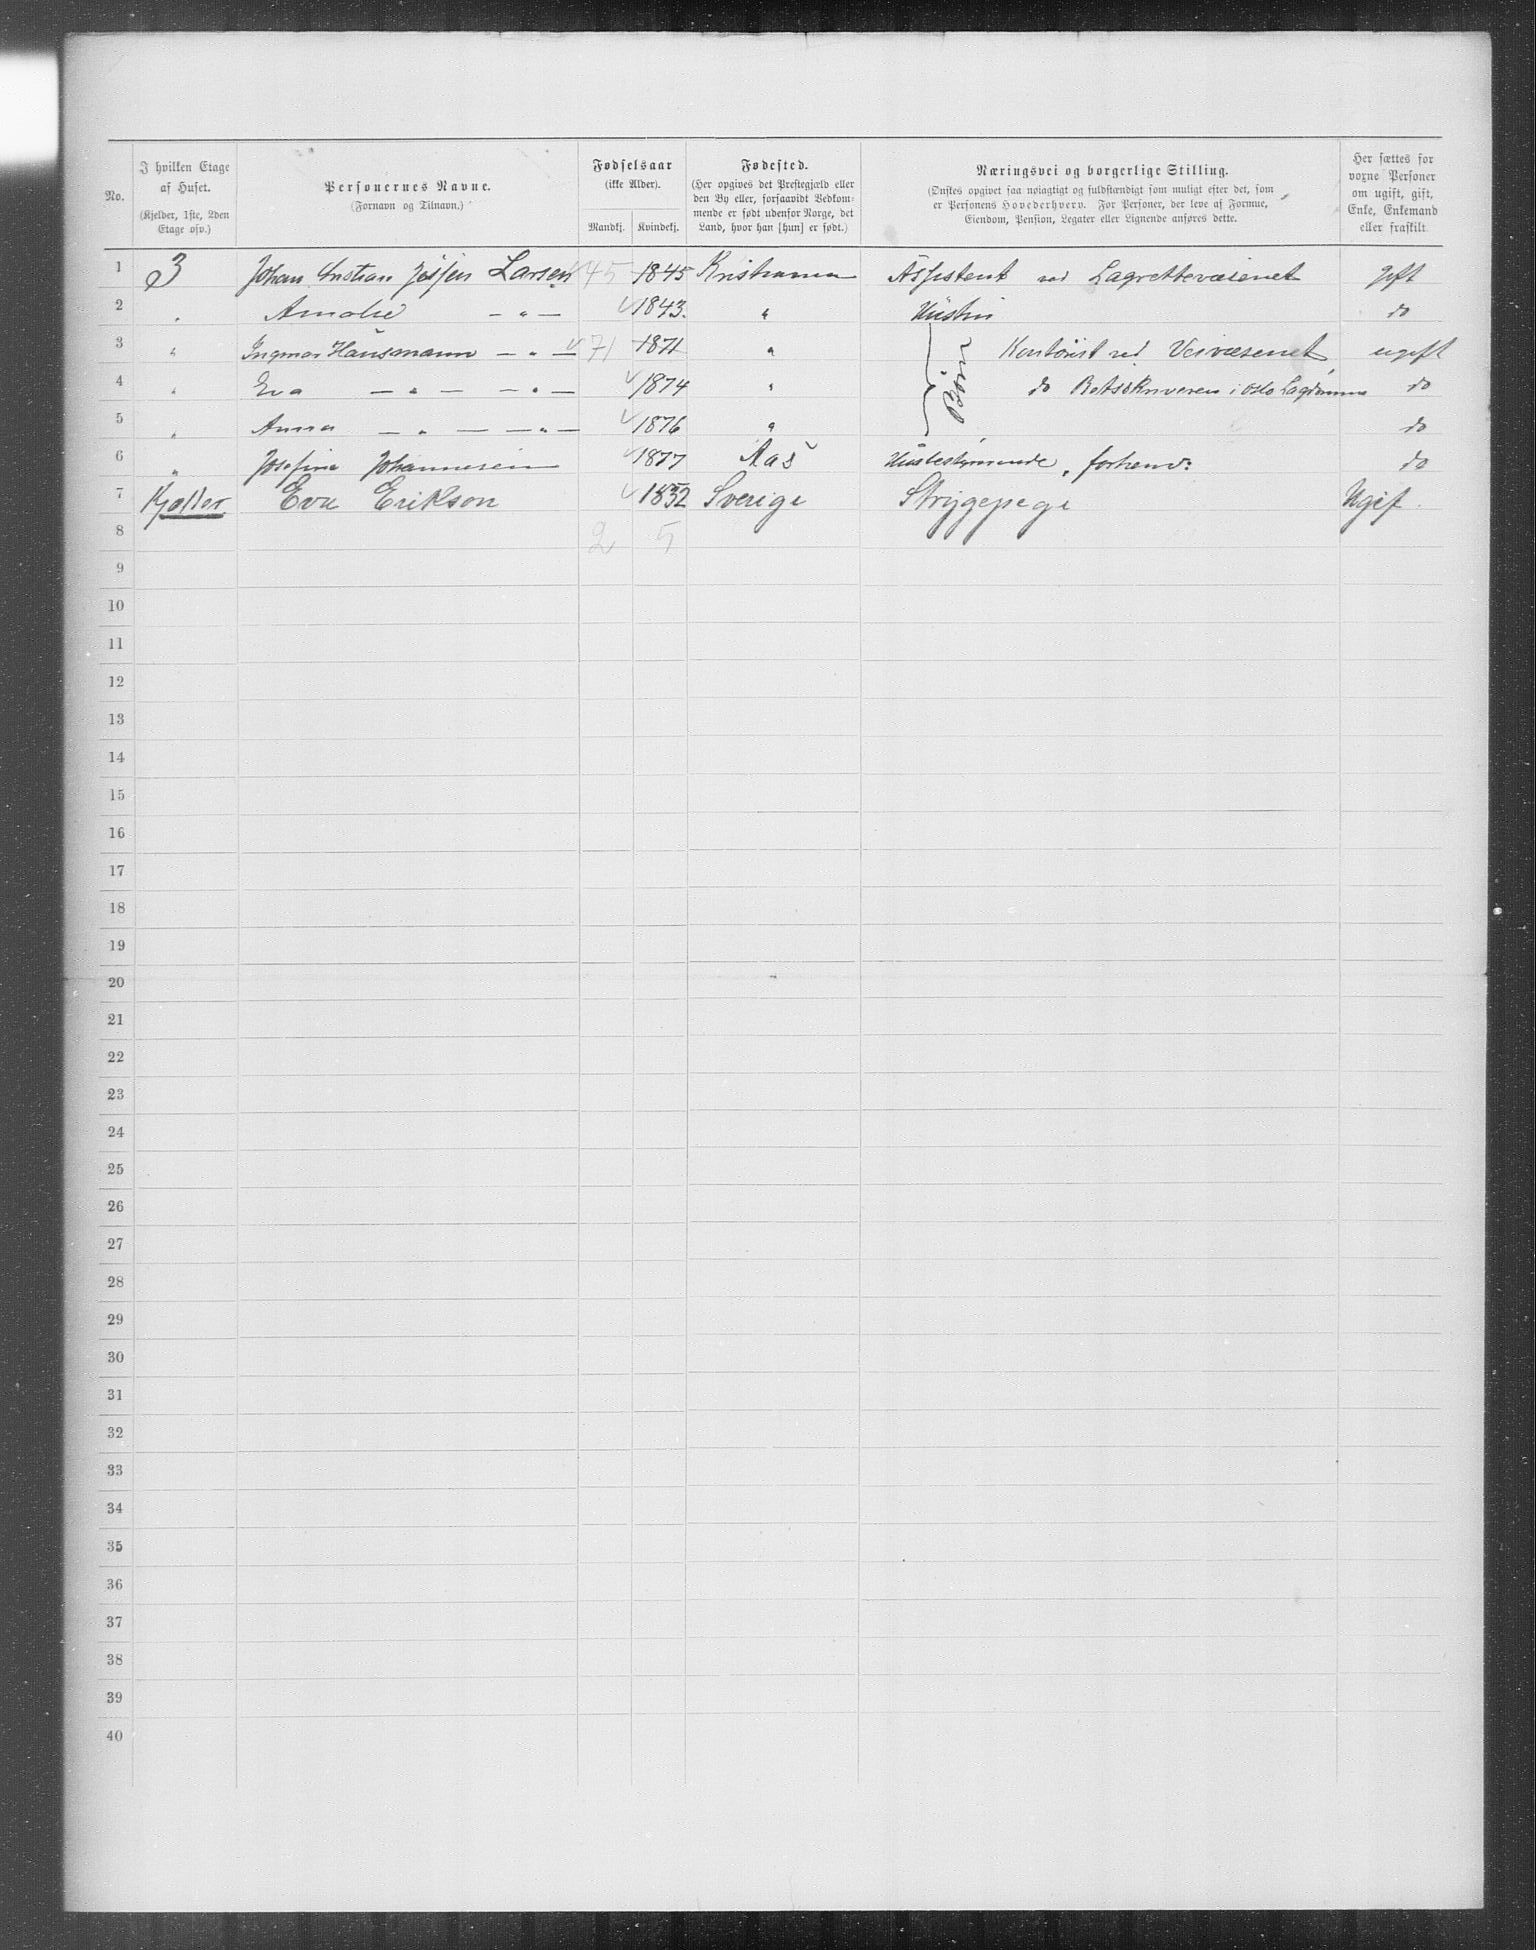 No.
I hvilken Etage af Huset.
(Kjelder, 1ste, 2den Etage osv.)
Personernes Navne.
(Fornavn og Tilnavn.)
Fødselsaar
(ikke Alder).
Mandkj. Kvindekj.
Fødested.
(Her opgives det Prestegjæld eller
den By eller, forsaavidt Vedkom-
mende er født udenfor Norge, det
Land, hvor han [hun] er født.)
Næringsvei og borgerlige Stilling.
(Ønskes opgivet saa nøiagtigt og fuldstændigt som muligt efter det, som
er Personens Hovederhverv. For Personer, der leve af Formue,
Eiendom, Pension, Legater eller Lignende anføres dette.
Her sættes for
voxne Personer
om ugift, gift,
Enke, Enkemand
eller fraskilt.
1 3 Johan Larsen 45 1845 Kristiania Assistent ved Lagrettevæsenet gift
2 " Amalie — " — 1843. " Hustru do
3 " Ingmar Hausmann — " — 71 1871 " Kontorist ved Veivæsenet ugift
4 " Eva — " — — " — 1874 " Børn do i Oslo do
5 " Anna — " — — " — 1876 " do
6 " Josefine Johannesen 1877 Aas Husbestyrende, do
7 Kjælder Eva Erikson 1852 Sverige Strygepege Ugif.
8 2 5
9
10
11
12
13
14
15
16
17
18
19
20
21
22
23
24
25
26
27
28
29
30
31
32
33
34
35
36
37
38
39
40